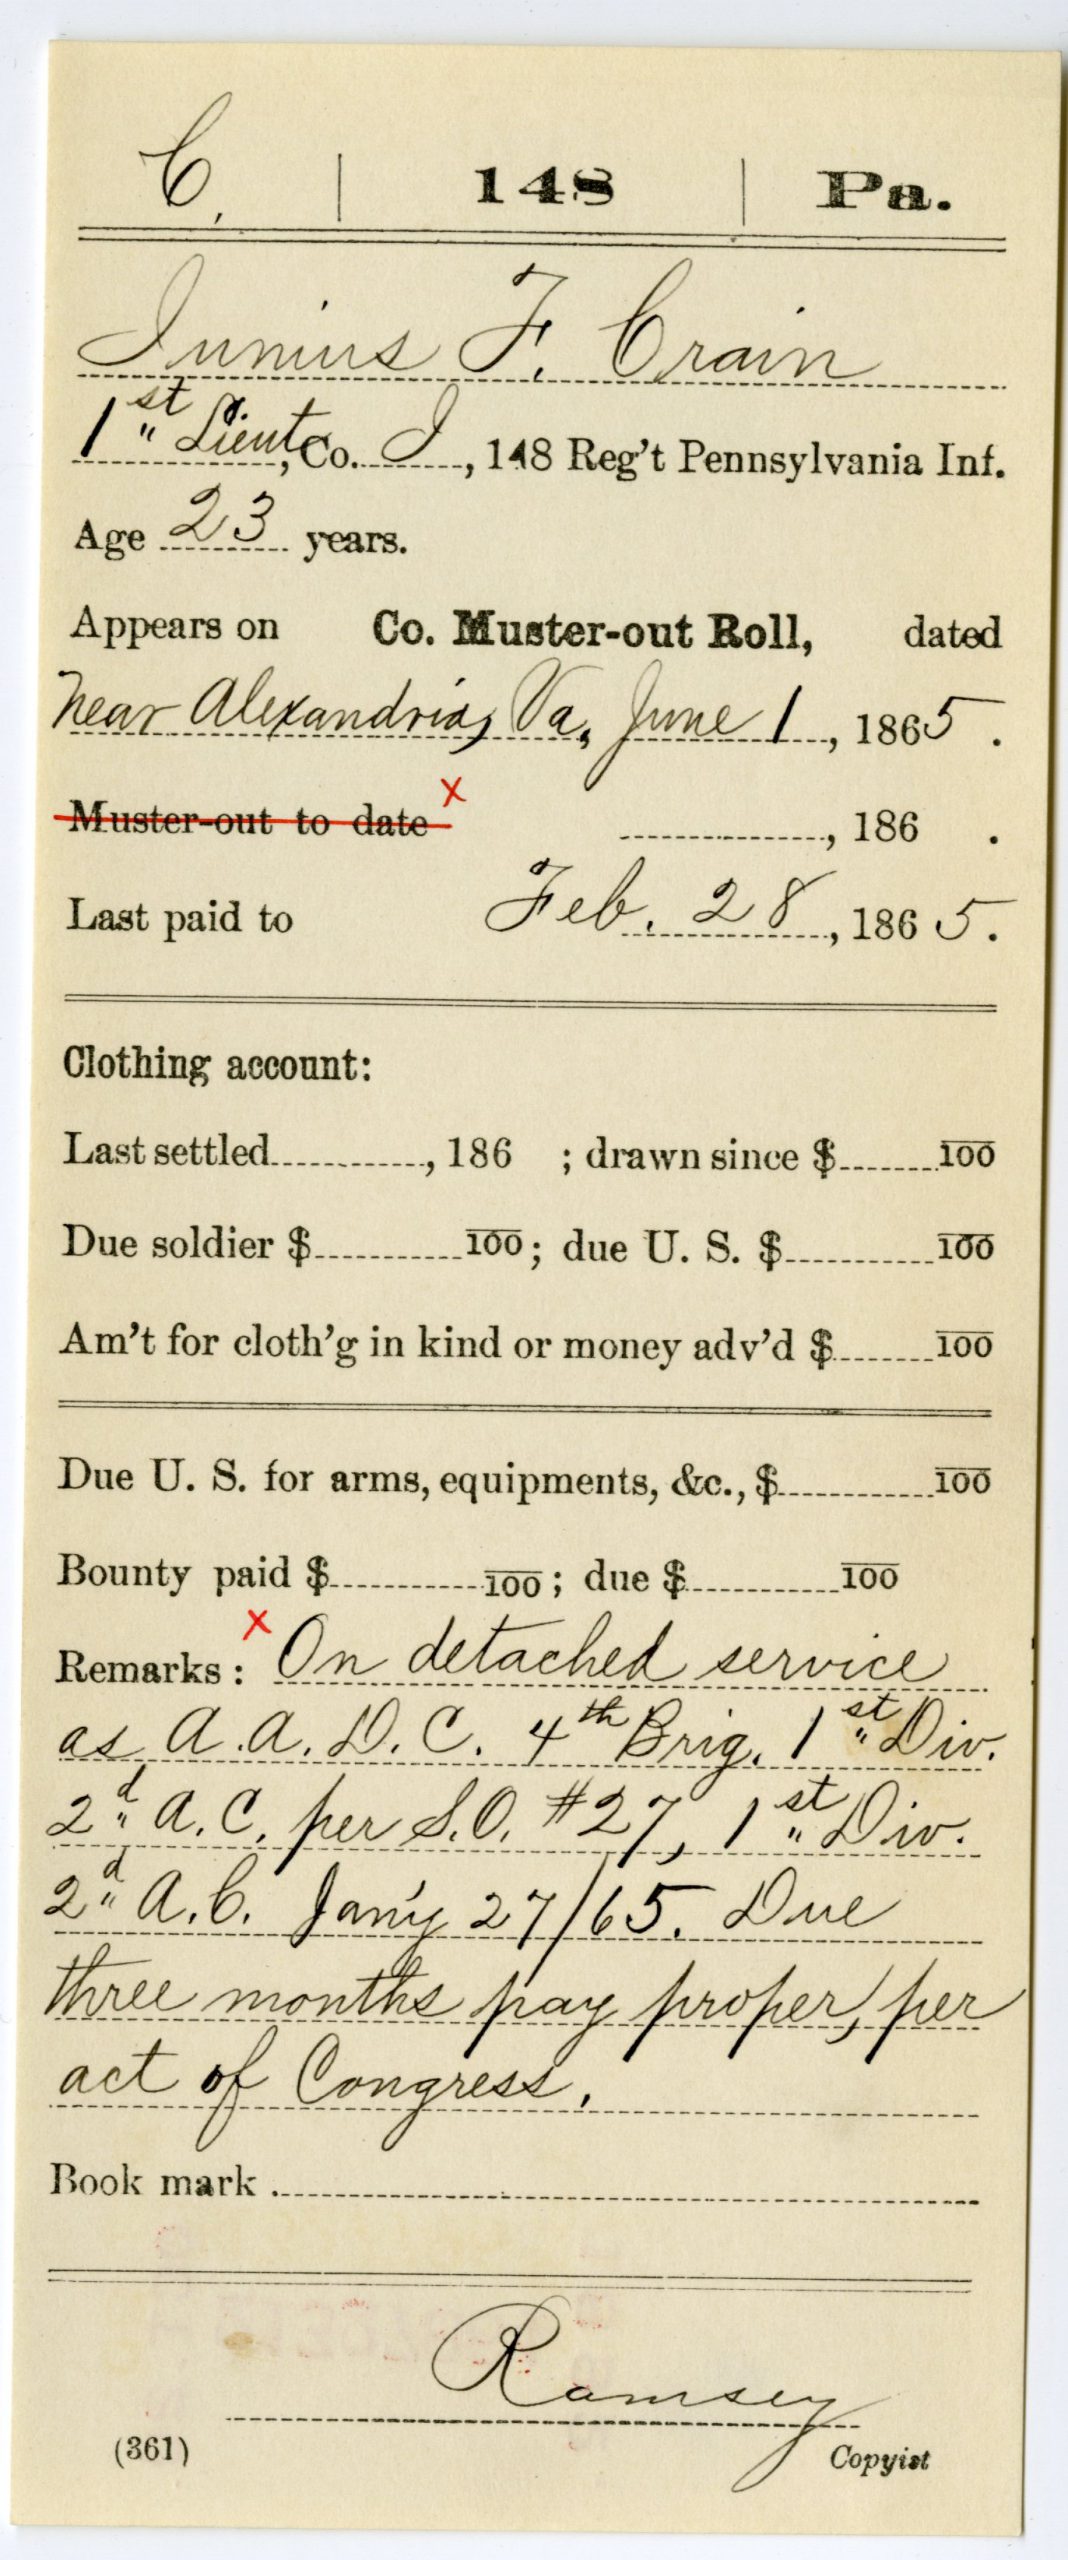 C. | 148 | Pa.
Junius F. Crain
1st Lieut, Co. I, 148 Reg't Pennsylvania Inf.
Age 23 years.
Appears on Co. Muster-out Roll, dated
near Alexandria, Va, June 1, 1865.
Muster-out to date x ............, 186 .
Last paid to Feb. 28, 1865.
Clothing account:
Last settled............, 186 ; drawn since $........100
Due soldier $............100; due U. S. $............100
Am't for cloth'g in kind or money adv'd $........100
Due U. S. for arms, equipments, &c., $............100
Bounty paid $............100; due $............100
Remarks: x On detached service
as A. A. D. C. 4th Brig. 1st Div.
2d A. C. per S.O. #27, 1st Div.
2d A. C. Jan'y 27/65. Due
three months pay proper, per
act of Congress.
Book mark
Ramsey
(361) Copyist